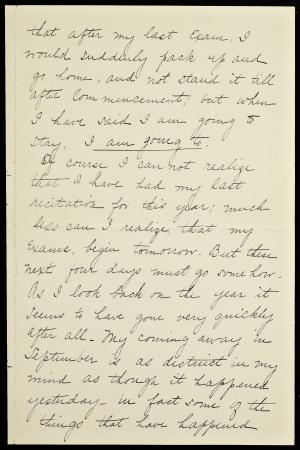 that after my last Exam. I
would suddenly pack up and
go home, and not stand it till
after Commencement; but when
I have said I am going to
stay, I am going to.
Of course I can not realize
that I have had my last
recitation for this year; much
less can I realize that my
Exams. begin tomorrow. But these
next four days must go somehow.
As I look back on the year it
seems to have gone very quickly
after all - My coming away in
September is as distinct in my
mind as though it happened
yesterday - in fact some of the
things that have happened